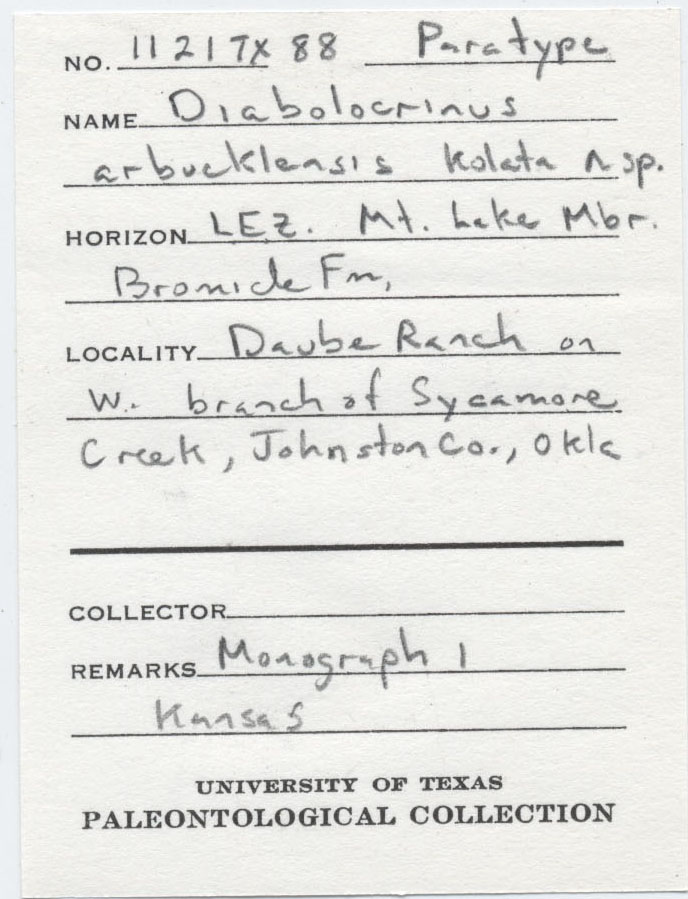 NO. 11217X88 Paratype
NAME Diabolocrinus
arbucklensis Kolata n sp.
HORIZON LEZ. Mt. Lake Mbr.
Bromide Fm,
LOCALITY Daube Ranch on
W. branch of Sycamore
Creek, Johnston Co., Okla
COLLECTOR
REMARKS Monograph 1
Kansas
UNIVERSITY OF TEXAS
PALEONTOLOGICAL COLLECTION